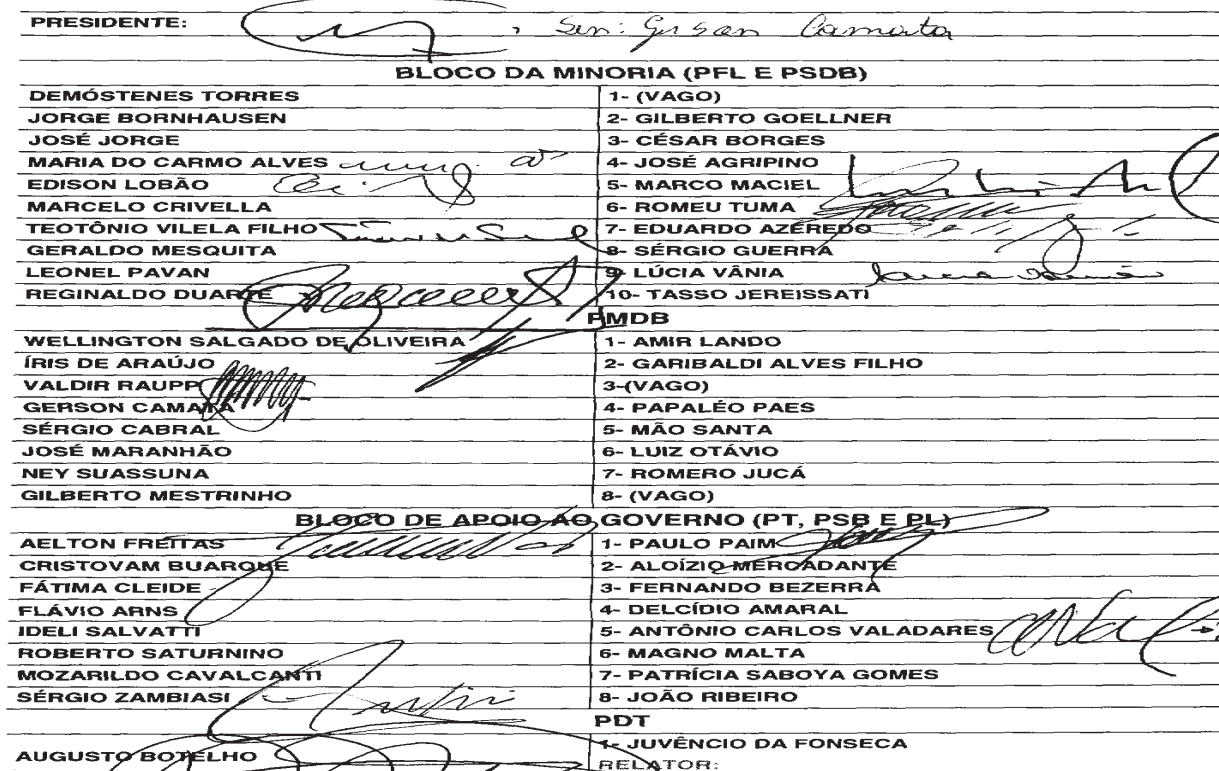 PRESIDENTE: , Sen: Gerson Camata
BLOCO DA MINORIA (PFL E PSDB)
DEMÓSTENES TORRES 1- (VAGO)
JORGE BORNHAUSEN 2- GILBERTO GOELLNER
JOSÉ JORGE 3- CÉSAR BORGES
MARIA DO CARMO ALVES 4- JOSÉ AGRIPINO
EDISON LOBÃO 5- MARCO MACIEL
MARCELO CRIVELLA 6- ROMEU TUMA
TEOTÔNIO VILELA FILHO 7- EDUARDO AZEREDO
GERALDO MESQUITA 8- SÉRGIO GUERRA
LEONEL PAVAN 9- LÚCIA VÂNIA
REGINALDO DUARTE 10- TASSO JEREISSATI
PMDB
WELLINGTON SALGADO DE OLIVEIRA 1- AMIR LANDO
ÍRIS DE ARAÚJO 2- GARIBALDI ALVES FILHO
VALDIR RAUPP 3-(VAGO)
GERSON CAMATA 4- PAPALÉO PAES
SÉRGIO CABRAL 5- MÃO SANTA
JOSÉ MARANHÃO 6- LUIZ OTÁVIO
NEY SUASSUNA 7- ROMERO JUCÁ
GILBERTO MESTRINHO 8- (VAGO)
BLOCO DE APOIO AO GOVERNO (PT, PSB E PL)
AELTON FREITAS 1- PAULO PAIM
CRISTOVAM BUARQUE 2- ALOÍZIO MERCADANTE
FÁTIMA CLEIDE 3- FERNANDO BEZERRA
FLÁVIO ARNS 4- DELCÍDIO AMARAL
IDELI SALVATTI 5- ANTÔNIO CARLOS VALADARES
ROBERTO SATURNINO 6- MAGNO MALTA
MOZARILDO CAVALCANTI 7- PATRÍCIA SABOYA GOMES
SÉRGIO ZAMBIASI 8- JOÃO RIBEIRO
PDT
AUGUSTO BOTELHO 1- JUVÊNCIO DA FONSECA
RELATOR: